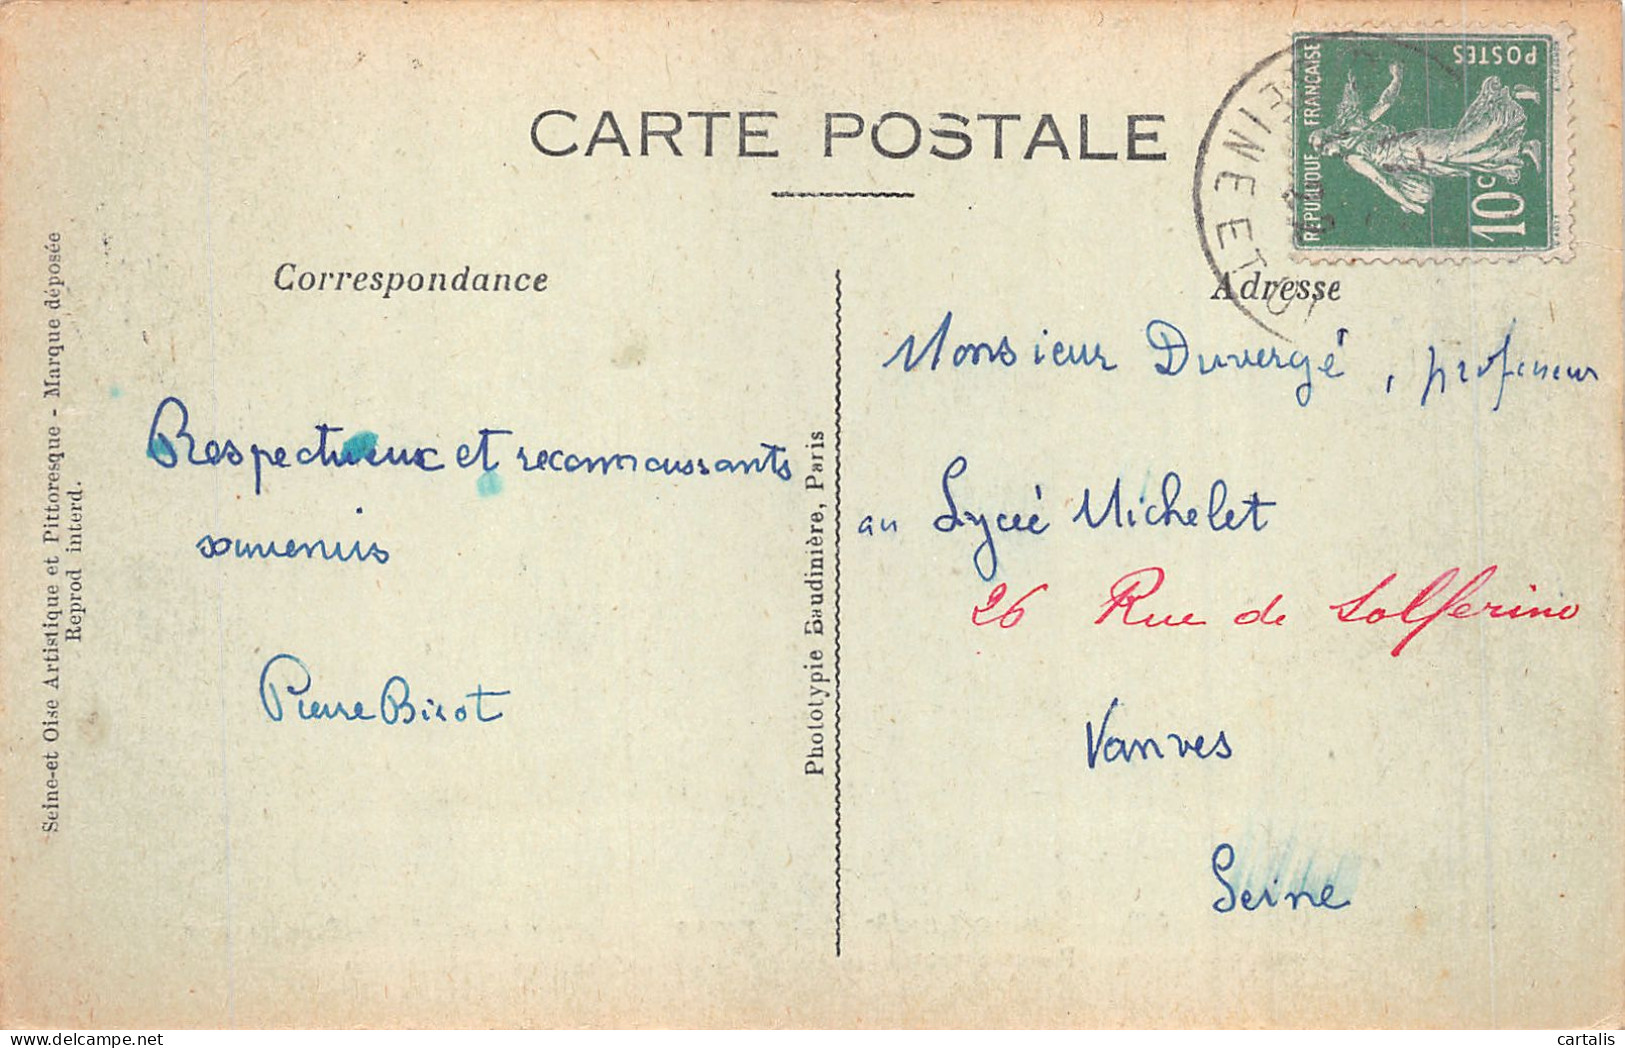 CARTE POSTALE
Correspondance
Adresse
Seine-et Oise Artistique et Pittoresque - Marque déposée
Reprod interd.
Respectueux et reconnaissants
souvenirs
Pierre Birot
Phototypie Baudinière, Paris
REPUBLIQUE FRANÇAISE
POSTES
10c
INE ET OI
Monsieur Duvergé, professeur
au Lycée Michelet
26 Rue de Solferino
Vanves
Seine
delcampe.net
cartalis